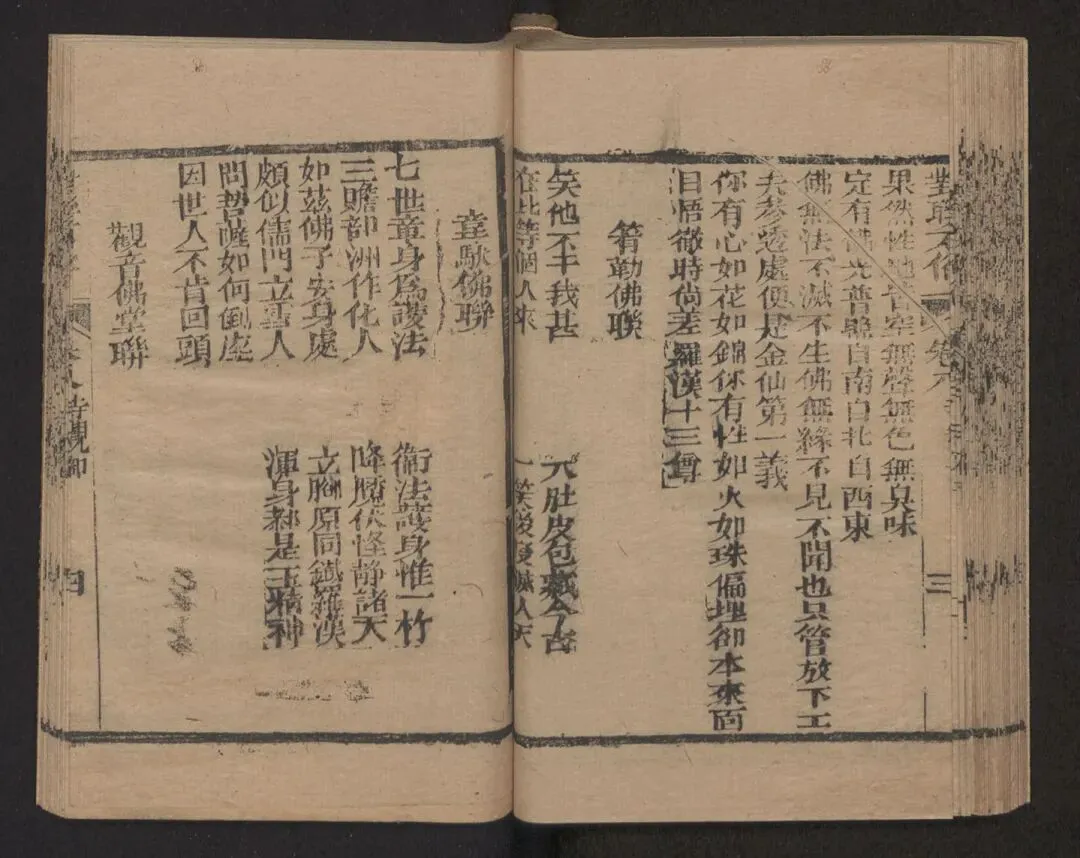 果然性地皆空無聲無色無臭味
定有佛光普照自南自北自西東
佛無法不滅不生佛無緣不見不聞也只管放下工
夫參透處便是金仙第一義
你有心如花如錦你有性如火如珠偏埋卻本來面
目悟徹時尚差羅漢十三尊
彌勒佛聯
笑他不丰我甚 大肚皮包藏今古
在此等個人來 一笑後便鹹人天
韋馱佛聯
七世童身為護法 衛法護身惟一杵
三贍部洲作化人 降魔伏怪靜諸天
如茲佛子安身處 立腳原同鐵羅漢
頗似儒門立聖人 渾身都是玉精神
問菩薩如何倒座
因世人不肯回頭
觀音佛堂聯
卷六
三
四